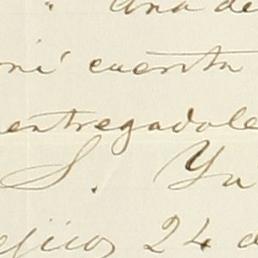 " Una de
mi cuenta
entregadole
S. Yn
ejico, 24 d